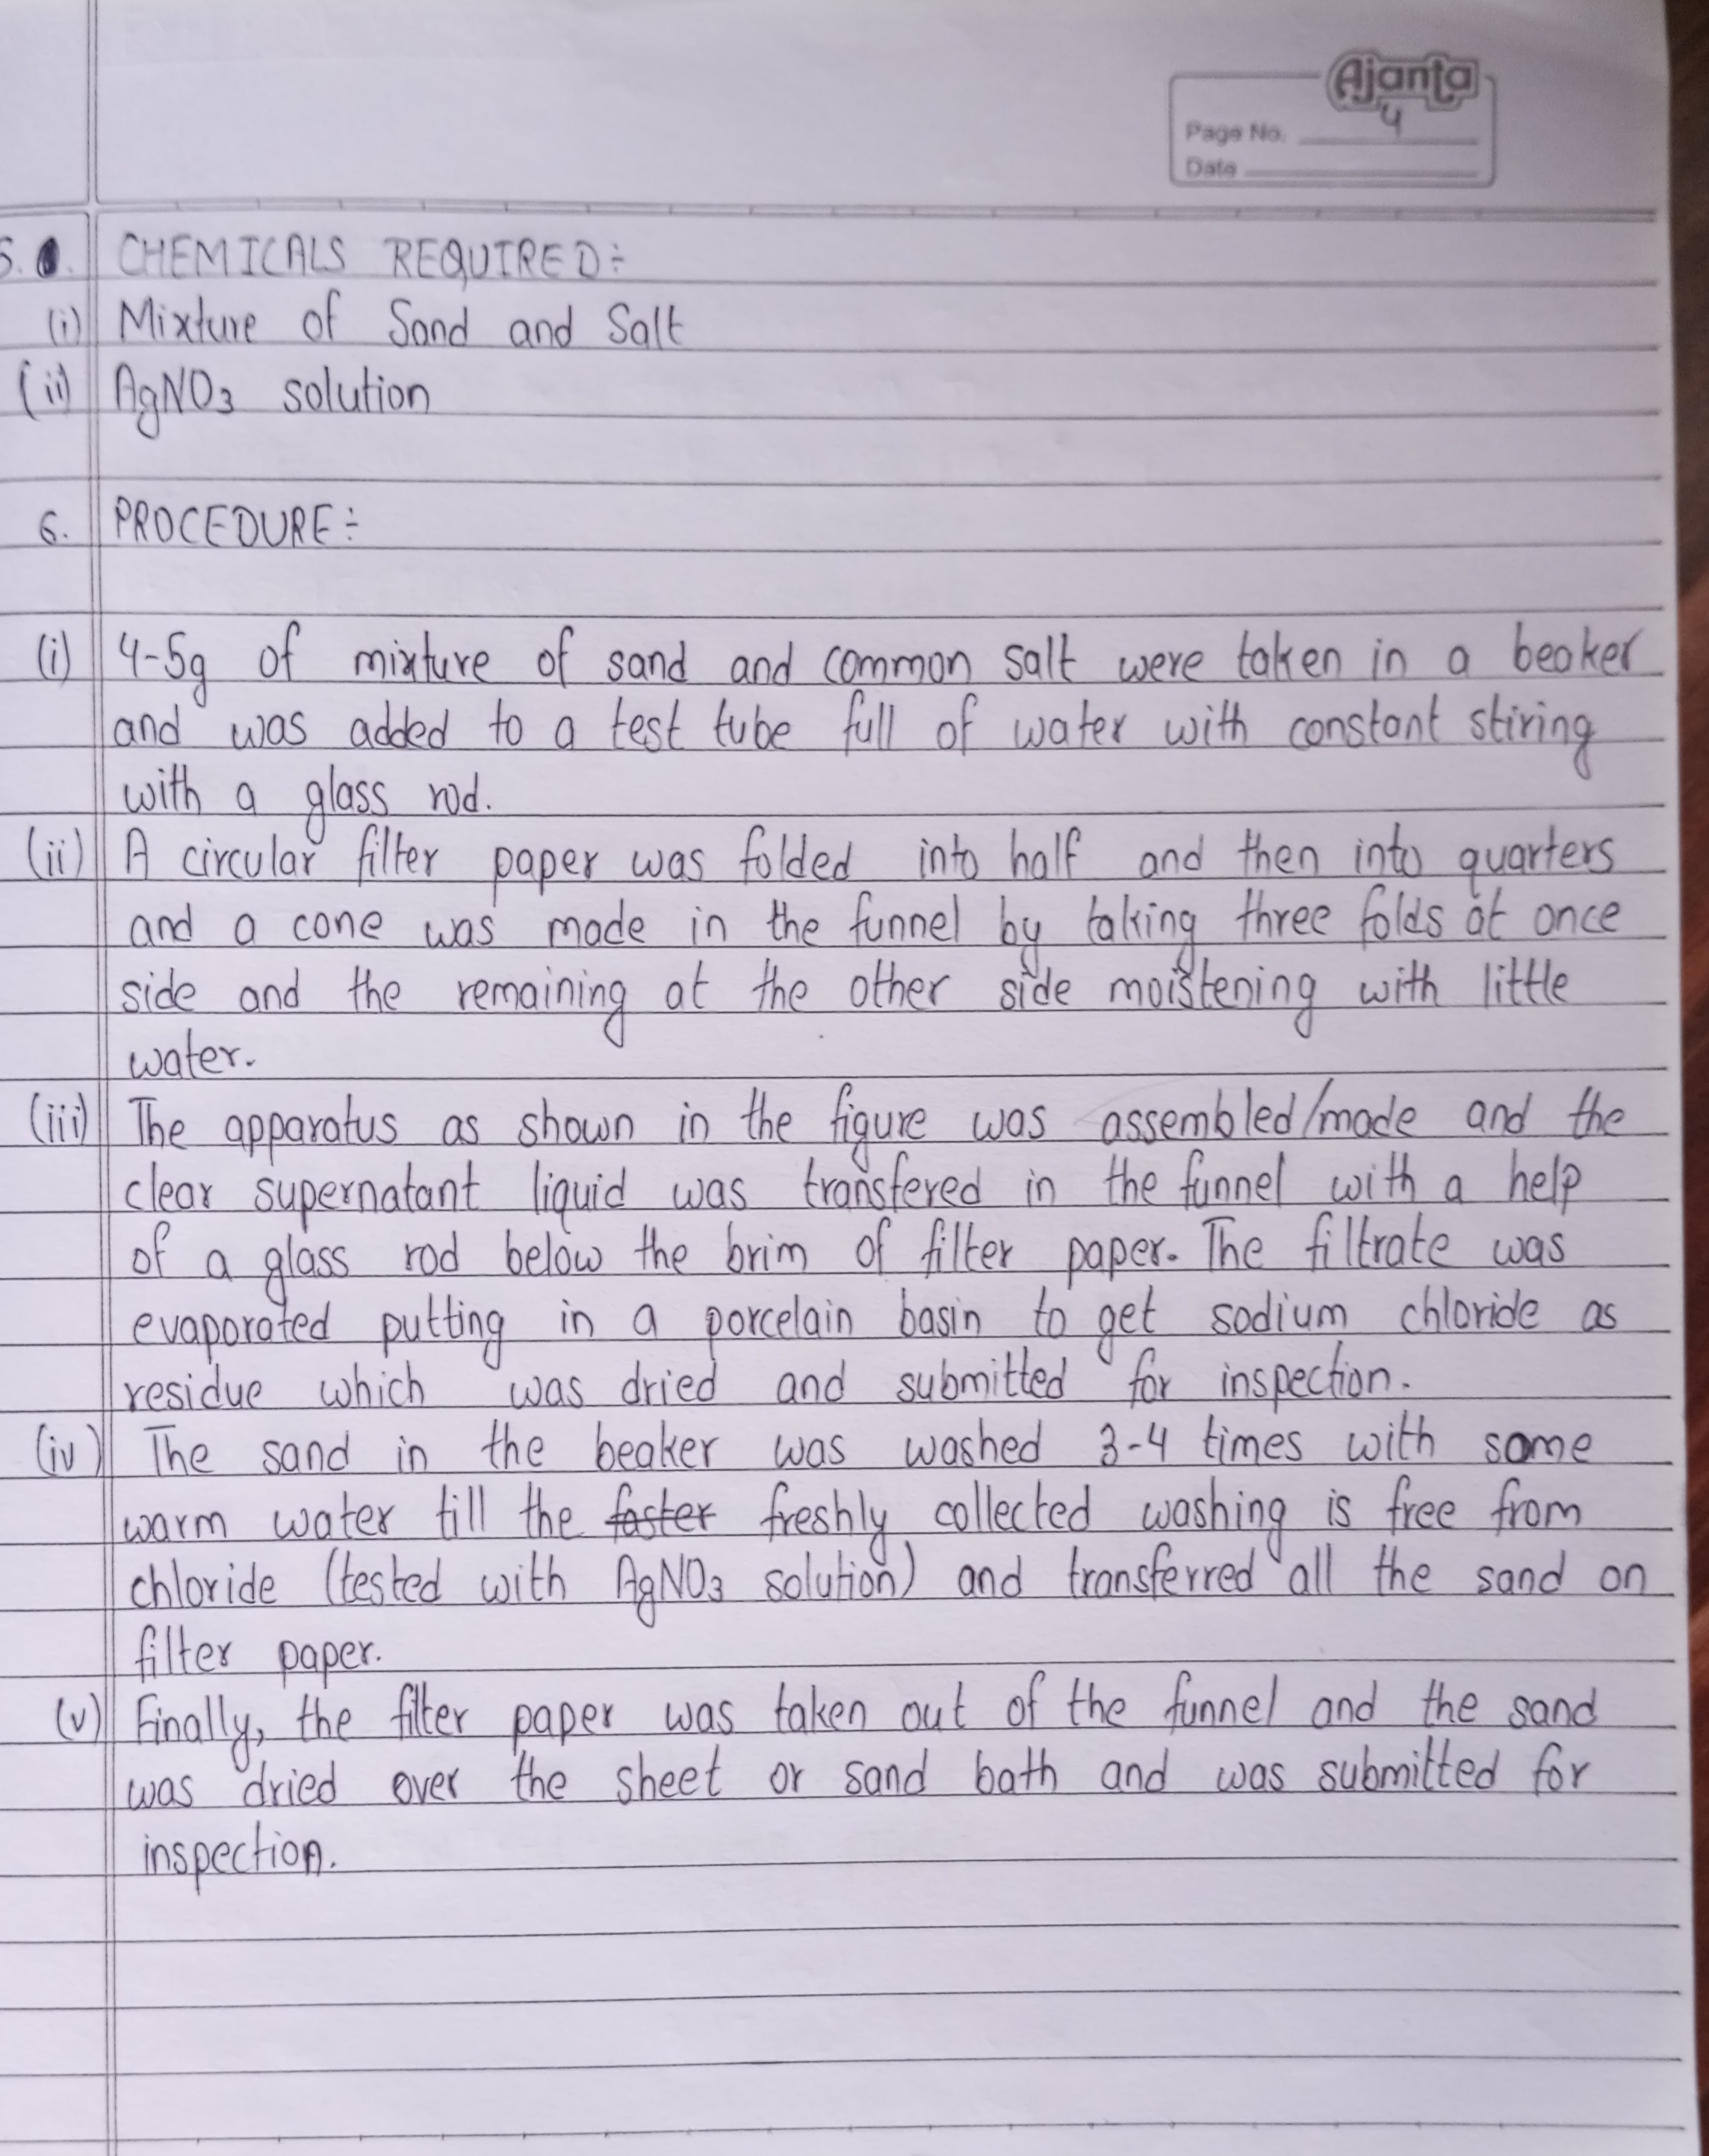 Ajanta
Page No. 4
Date
5. CHEMICALS REQUIRED:
(i) Mixture of Sand and Salt
(ii) AgNO3 solution
6. PROCEDURE:
(i) 4-5g of mixture of sand and common salt were taken in a beaker
and was added to a test tube full of water with constant stiring
with a glass rod.
(ii) A circular filter paper was folded into half and then into quarters
and a cone was made in the funnel by taking three folds at once
side and the remaining at the other side moistening with little
water.
(iii) The apparatus as shown in the figure was assembled/made and the
clear supernatant liquid was transfered in the funnel with a help
of a glass rod below the brim of filter paper. The filtrate was
evaporated putting in a porcelain basin to get sodium chloride as
residue which was dried and submitted for inspection.
(iv) The sand in the beaker was washed 3-4 times with some
warm water till the faster freshly collected washing is free from
chloride (tested with AgNO3 solution) and transferred all the sand on
filter paper.
(v) Finally, the filter paper was taken out of the funnel and the sand
was dried over the sheet or sand bath and was submitted for
inspection.